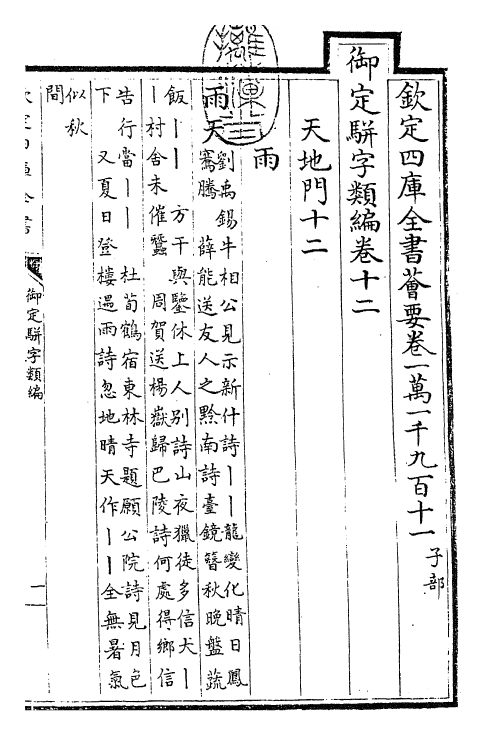 欽定四庫全書薈要卷一萬一千九百十一 子部
御定駢字類編卷十二
天地門十二
雨
雨天 劉禹錫牛相公見示新什詩丨丨龍變化晴日鳳
騫騰 薛能送友人之黔南詩臺鏡簪秋晚盤蔬
飯丨丨 方干與鑒休上人别詩山夜獵徒多信犬丨
丨村舍未催蠶 周賀送楊嶽歸巴陵詩何處得鄉信
告行當丨丨 杜荀鶴宿東林寺題願公院詩見月色
下 又夏日登樓遇雨詩忽地晴天作丨丨全無暑氣
似秋
間
御定駢字類編
一